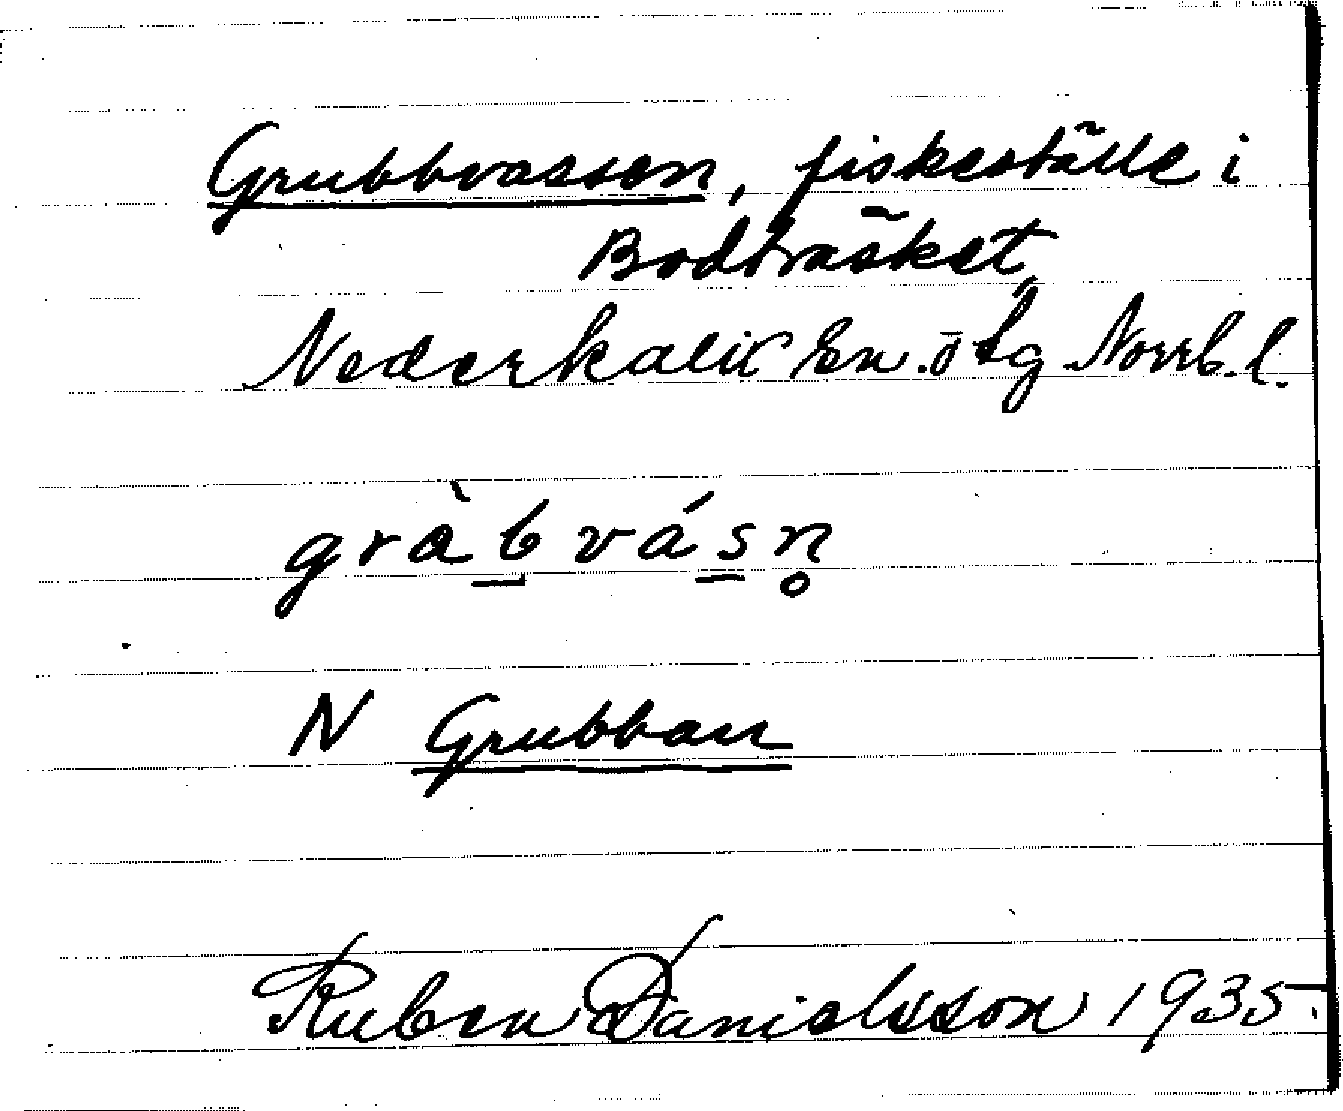 Grubbvassen, fiskeställe i
Bodträsket
Nederkalix sn. ö tg Norrb. l.
gràb̲ vás̲n̥
N Grubban
Ruben Danielsson 1935.